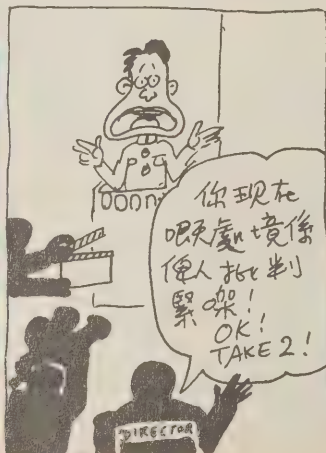 你現在
嘅處境係
俾人批判
緊㗎!
OK!
TAKE 2!
DIRECTOR